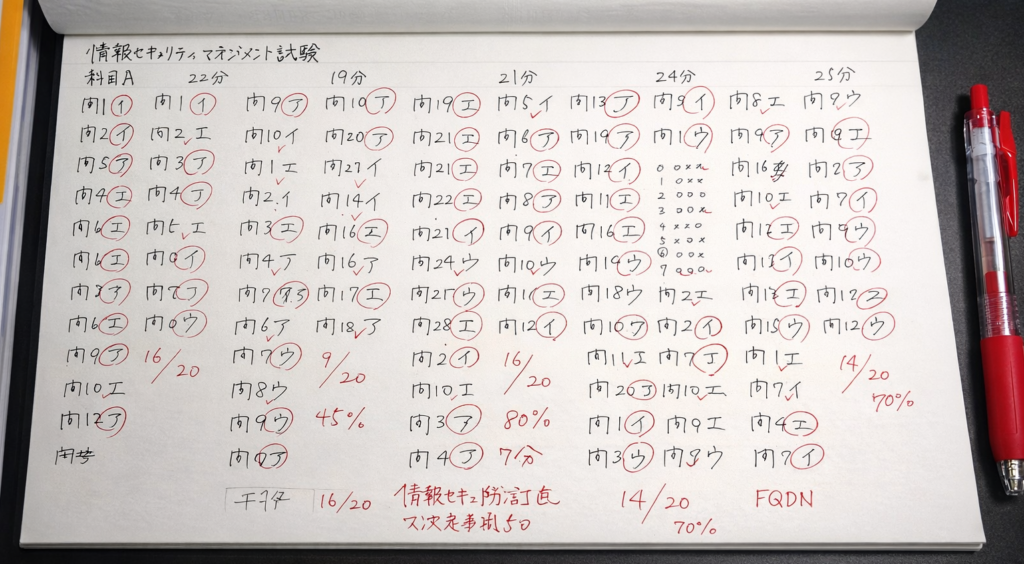 情報セキュリティマネジメント試験
科目A 22分 19分 21分 24分 25分
問1イ 問1イ 問9ア 問10ア 問19エ 問5イ 問13ア 問9イ 問8エ 問9ウ
問2イ 問2エ 問10イ 問20ア 問21エ 問6ア 問19ア 問1ウ 問9ア 問9エ
問5ア 問3ア 問1エ 問21イ 問21エ 問7エ 問12イ 0 0×× 問16 問2ア
1 0××
問4エ 問4ア 問2イ 問14イ 問22エ 問8ア 問11エ 2 000 問10エ 問7イ
3 00×
問6エ 問5エ 問3エ 問16エ 問21イ 問9イ 問16エ 4 ××0 問12エ 問9ウ
5 ×0×
問6エ 問6イ 問4ア 問16ア 問24ウ 問10ウ 問19ウ 6 00× 問13イ 問10ウ
7 000
問3ア 問7ア 問7 問17エ 問25ウ 問11エ 問18ウ 問2エ 問12エ 問12
問6エ 問6ウ 問6ア 問18ア 問28エ 問12イ 問10ウ 問2イ 問15ウ 問12ウ
問9ア 16/20 問7ウ 9/20 問2イ 16/20 問11エ 問7エ 問1エ 14/20
問10エ 問8ウ 問10エ 問20ア 問10エ 問7イ 70%
問12ア 問9ウ 45% 問3ア 80% 問1イ 問9エ 問4エ
問9ア 問4ア 7分 問3ウ 問9ウ 問7イ
16/20 情報セキュ 14/20 FQDN
70%